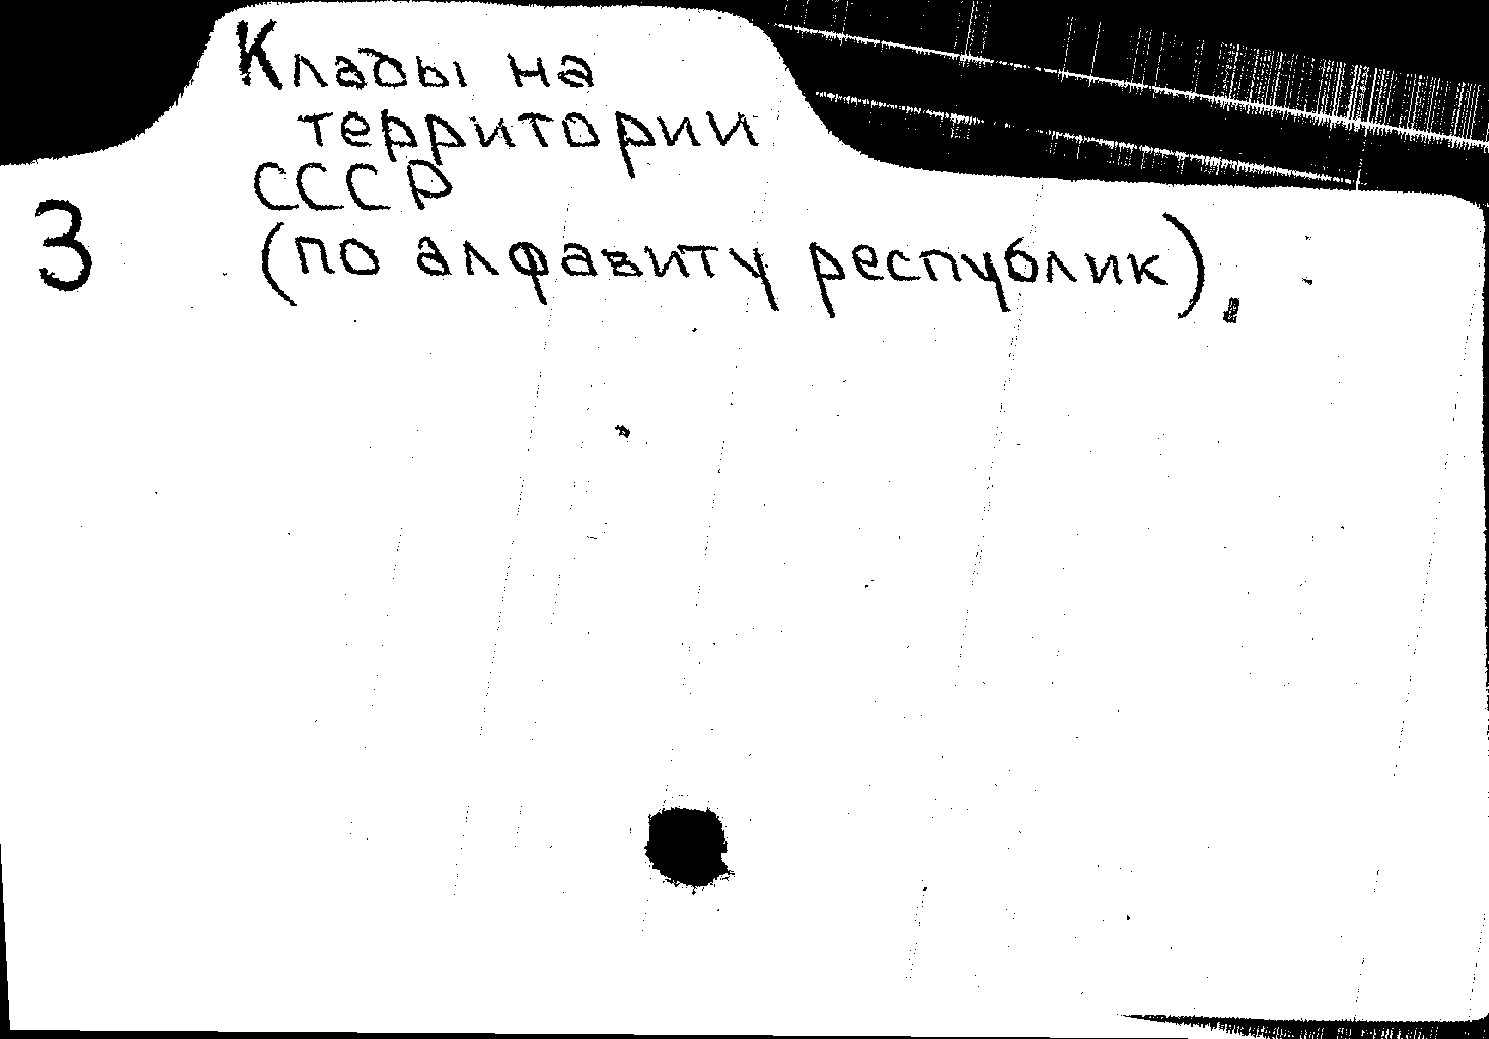 Клады на
территории
СССР
3 (по алфавиту республик).